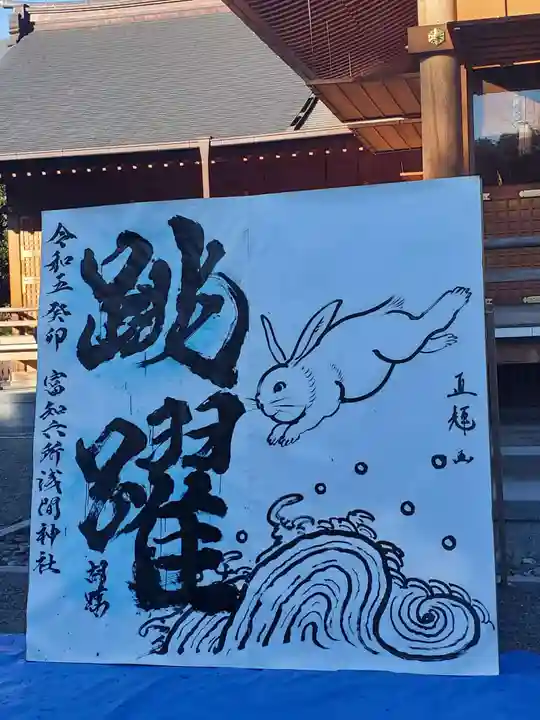 直輝画
跳躍
令和五癸卯 富知六所浅間神社